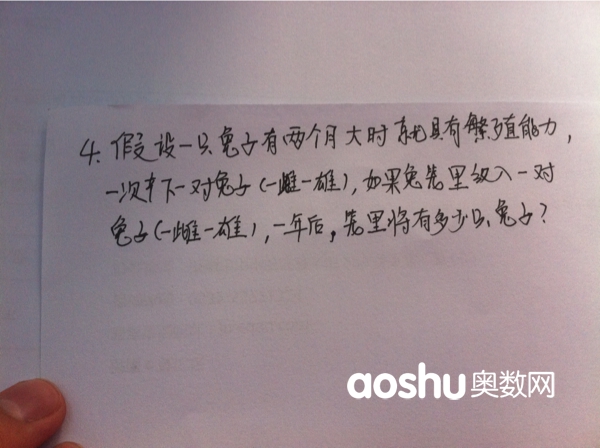 4. 假设一只兔子有两个月大时就具有繁殖能力,
一次产下一对兔子(一雌一雄),如果兔笼里放入一对
兔子(一雌一雄),一年后,笼里将有多少只兔子?
aoshu奥数网